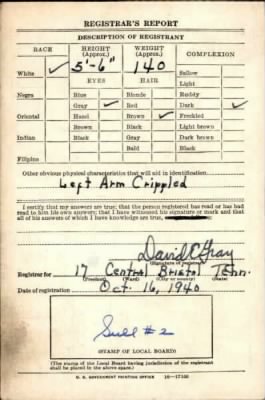 REGISTRAR'S REPORT
DESCRIPTION OF REGISTRANT
RACE HEIGHT (Approx.) WEIGHT (Approx.) COMPLEXION
White ✓ 5'-6" 140 Sallow
EYES HAIR Light
Negro Blue Blonde Ruddy
Gray ✓ Red Dark ✓
Oriental Hazel Brown ✓ Freckled
Brown Black Light brown
Indian Black Gray Dark brown
Bald Black
Filipino
Other obvious physical characteristics that will aid in identification
Left Arm Crippled
I certify that my answers are true; that the person registered has read or has had read to him his own answers; that I have witnessed his signature or mark and that all of his answers of which I have knowledge are true,
David E Gray
(Signature of registrar)
Registrar for 17 Central Bristol Tenn.
(Precinct) (Ward) (City or county) (State)
Date of registration Oct. 16, 1940
#2
(STAMP OF LOCAL BOARD)
(The stamp of the Local Board having jurisdiction of the registrant shall be placed in the above space.)
U. S. GOVERNMENT PRINTING OFFICE 16—17105